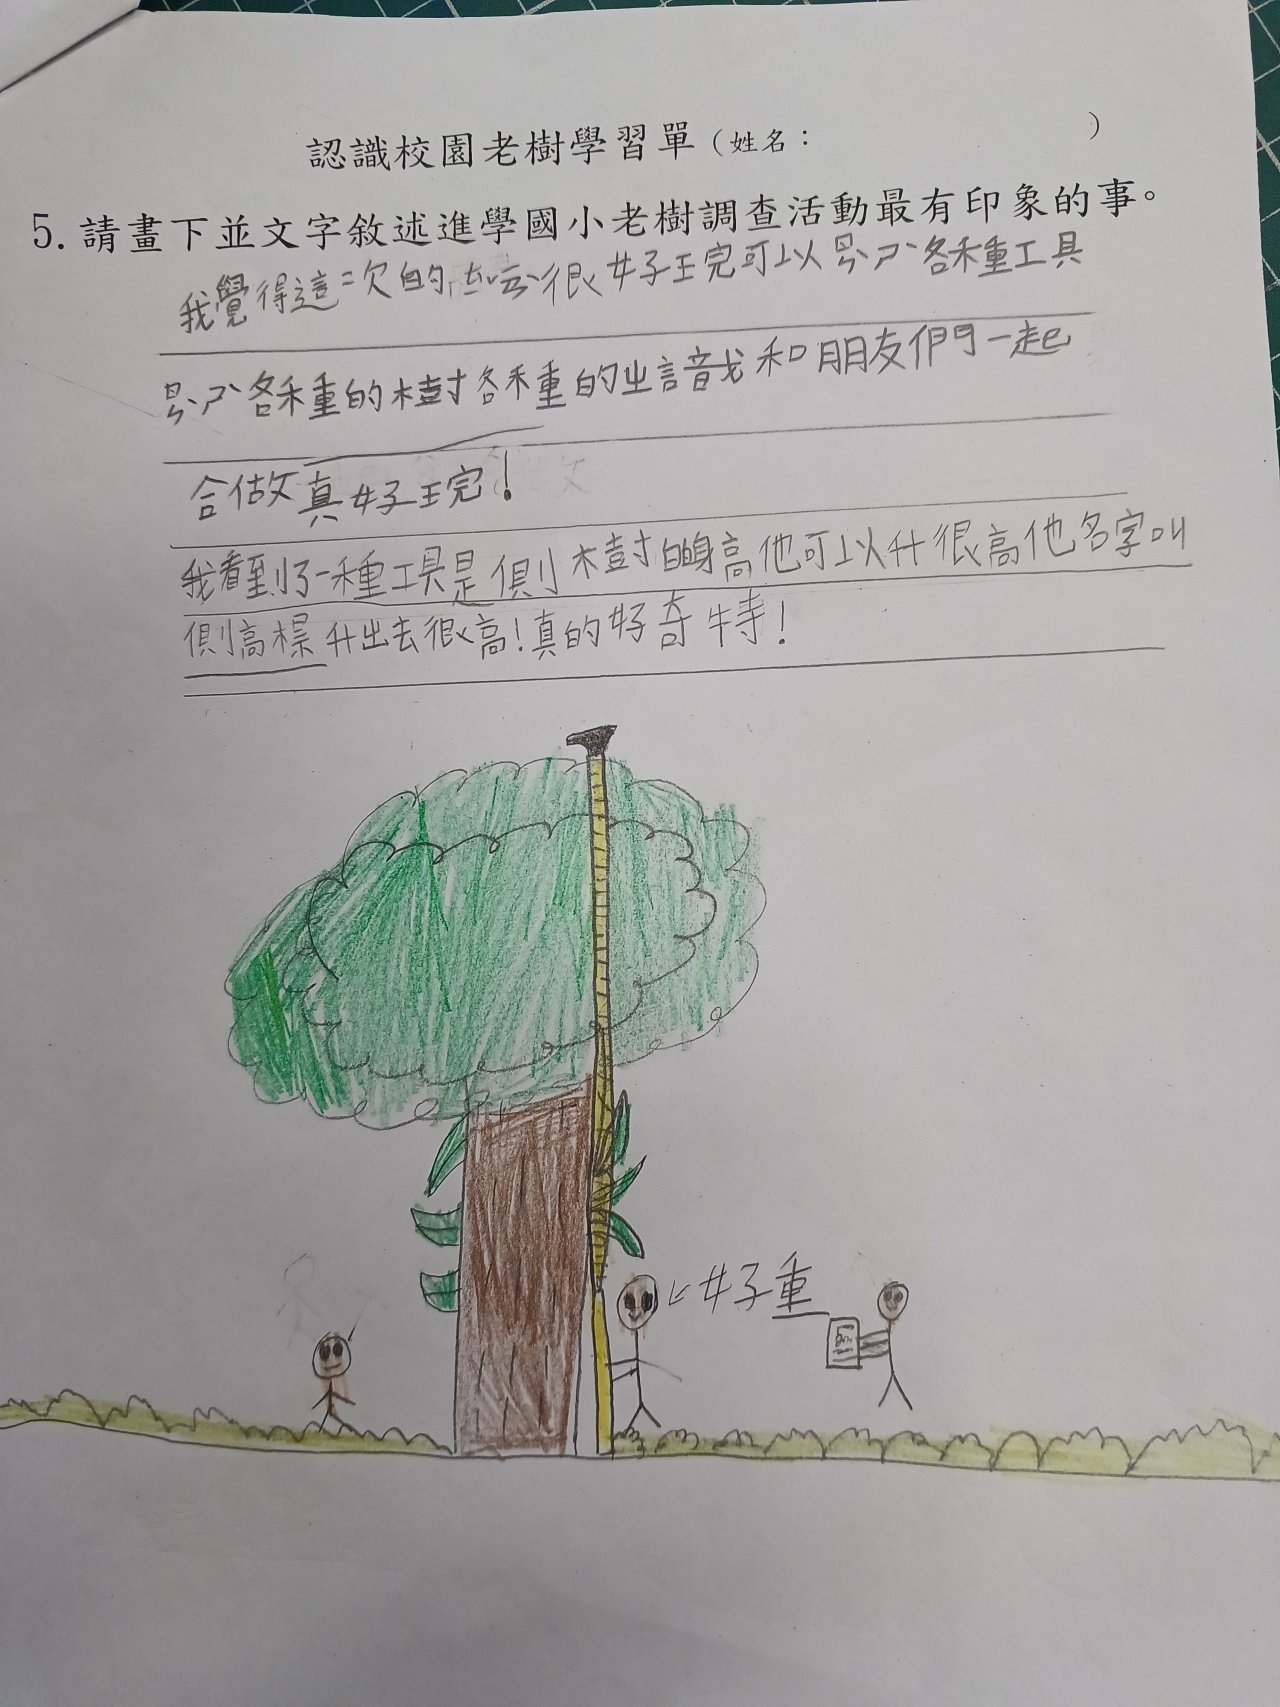 認識校園老樹學習單（姓名：　　　）
5. 請畫下並文字敘述進學國小老樹調查活動最有印象的事。
我覺得這次的 很好玩可以ㄖㄣˋㄕˋ各種工具
ㄖㄣˋㄕˋ各種的樹各種的知識我和朋友們一起
合做真好玩!
我看到了一種工具是側樹的身高他可以升很高他名字叫
側高標升出去很高!真的好奇特!
好重